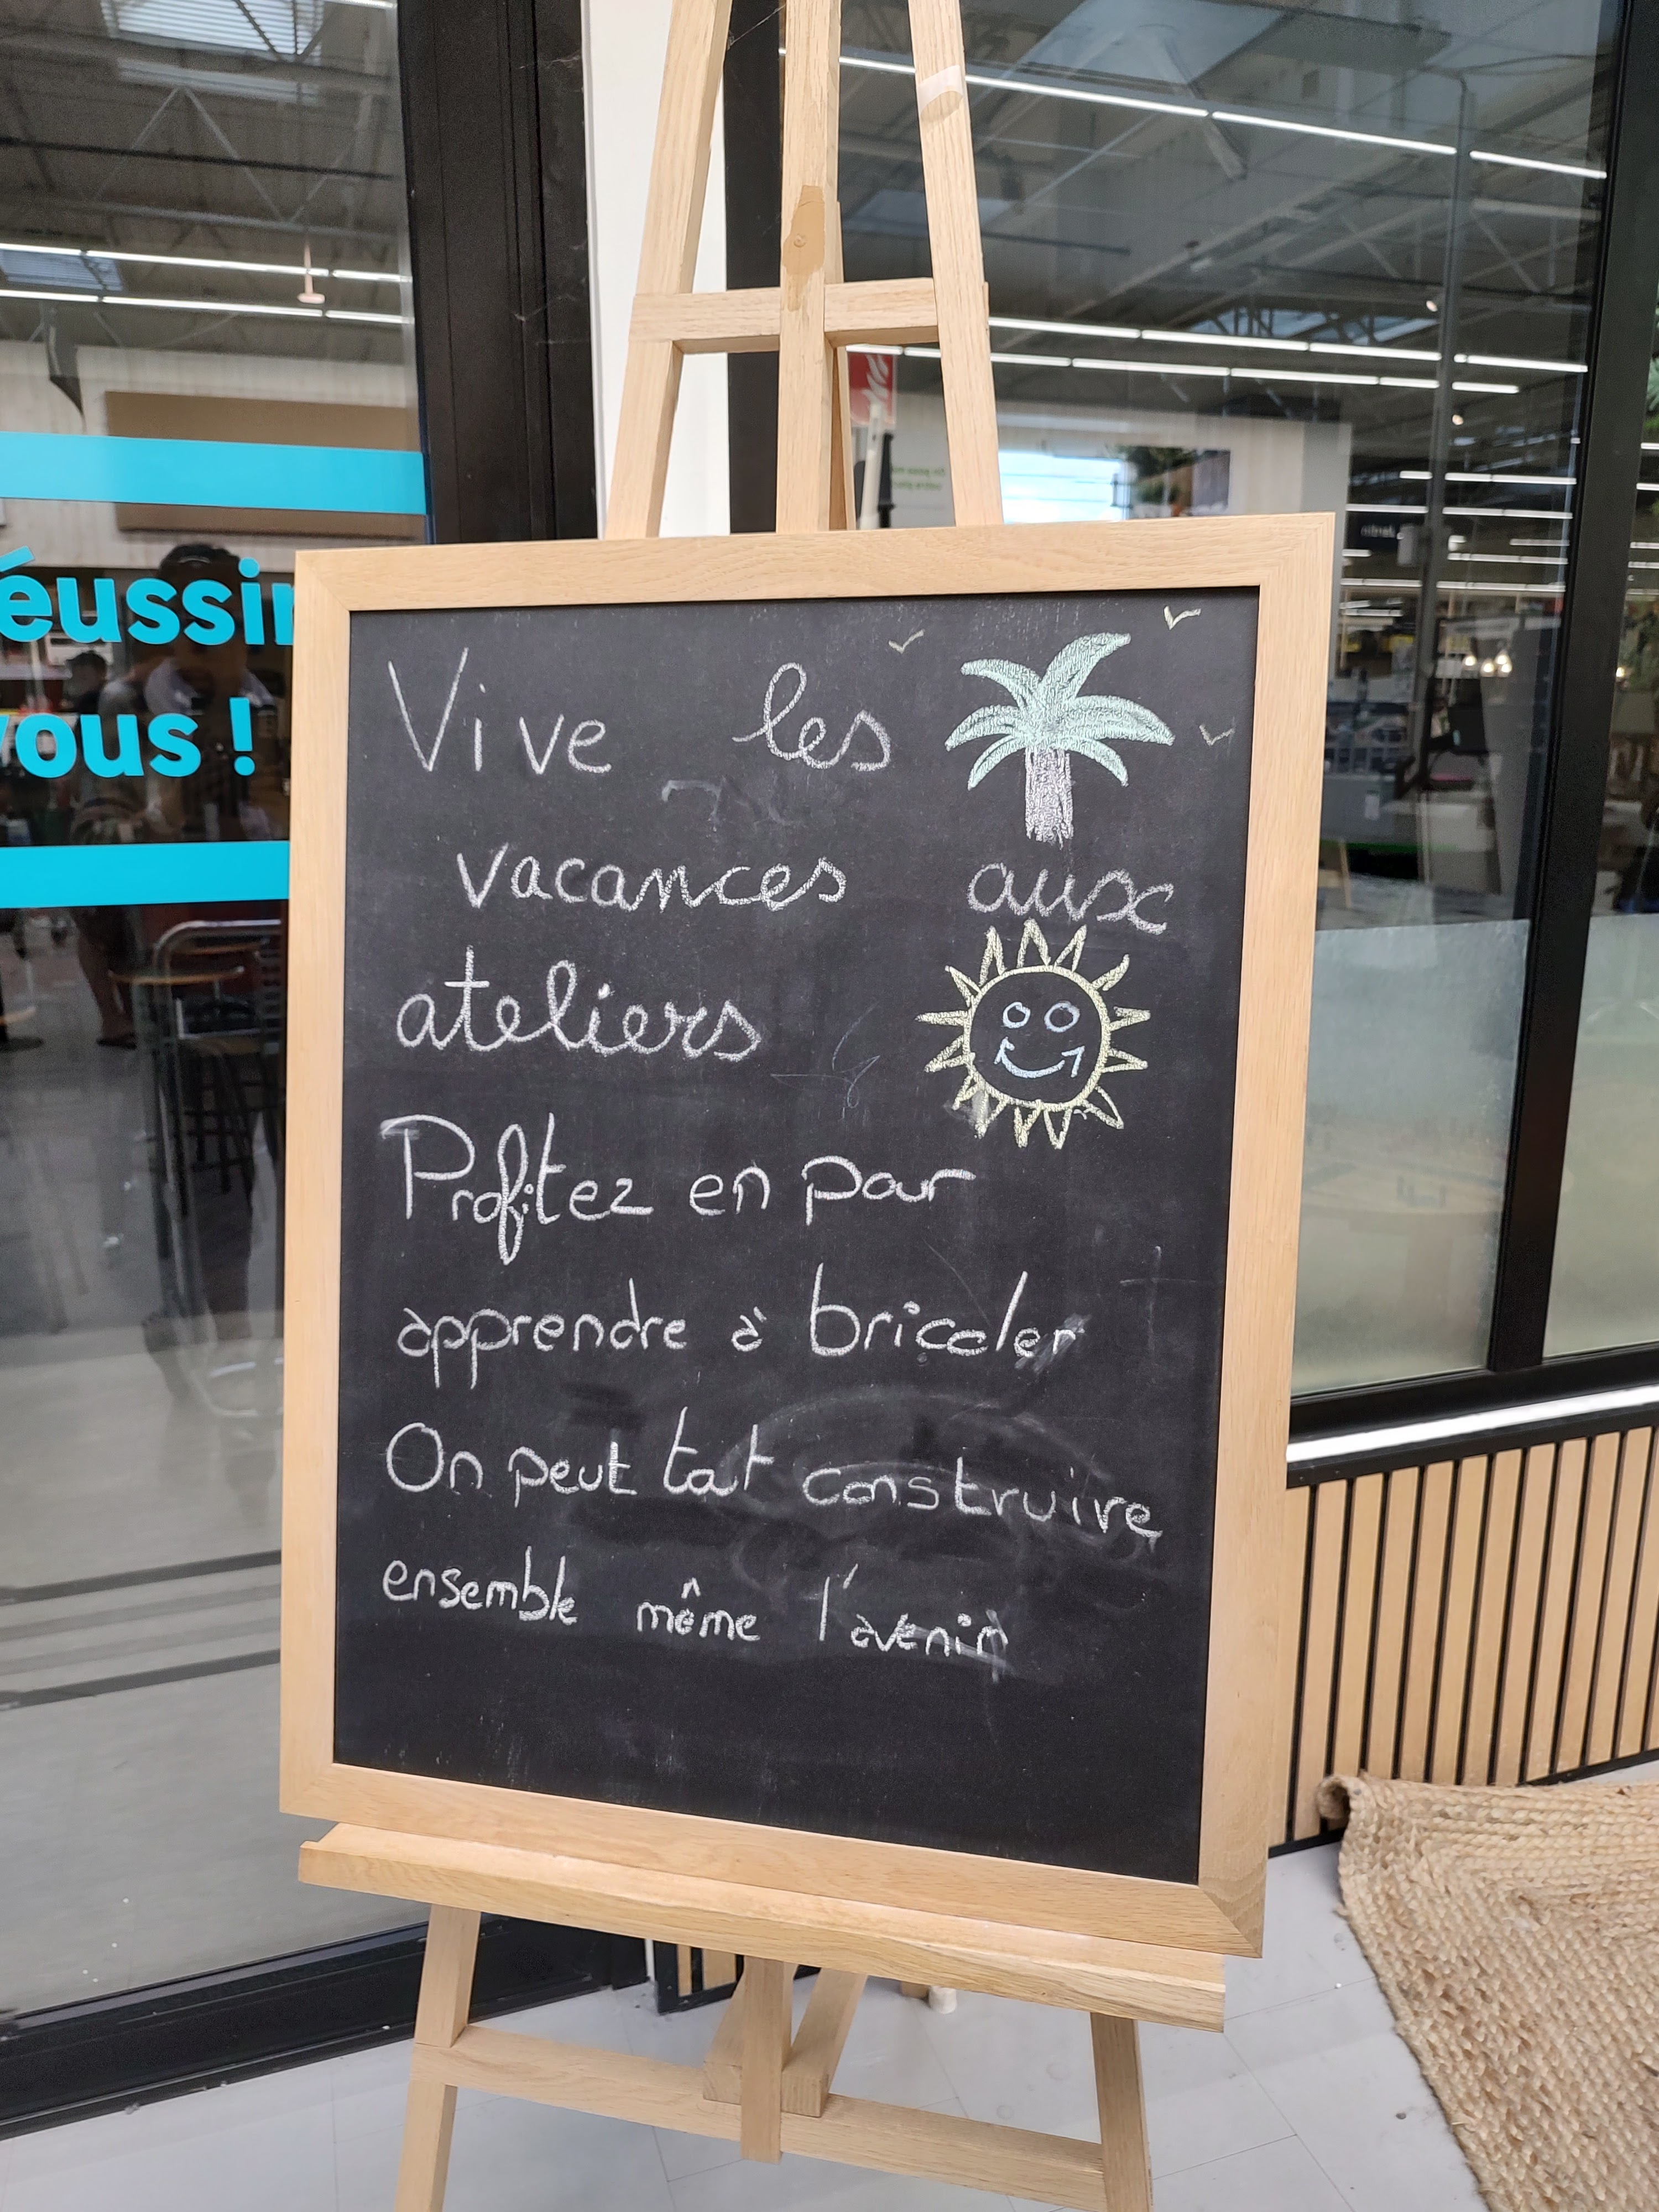 éussir
vous !
Vive les
vacances aux
ateliers
Profitez en pour
apprendre à bricoler
On peut tout construire
ensemble même l'avenir